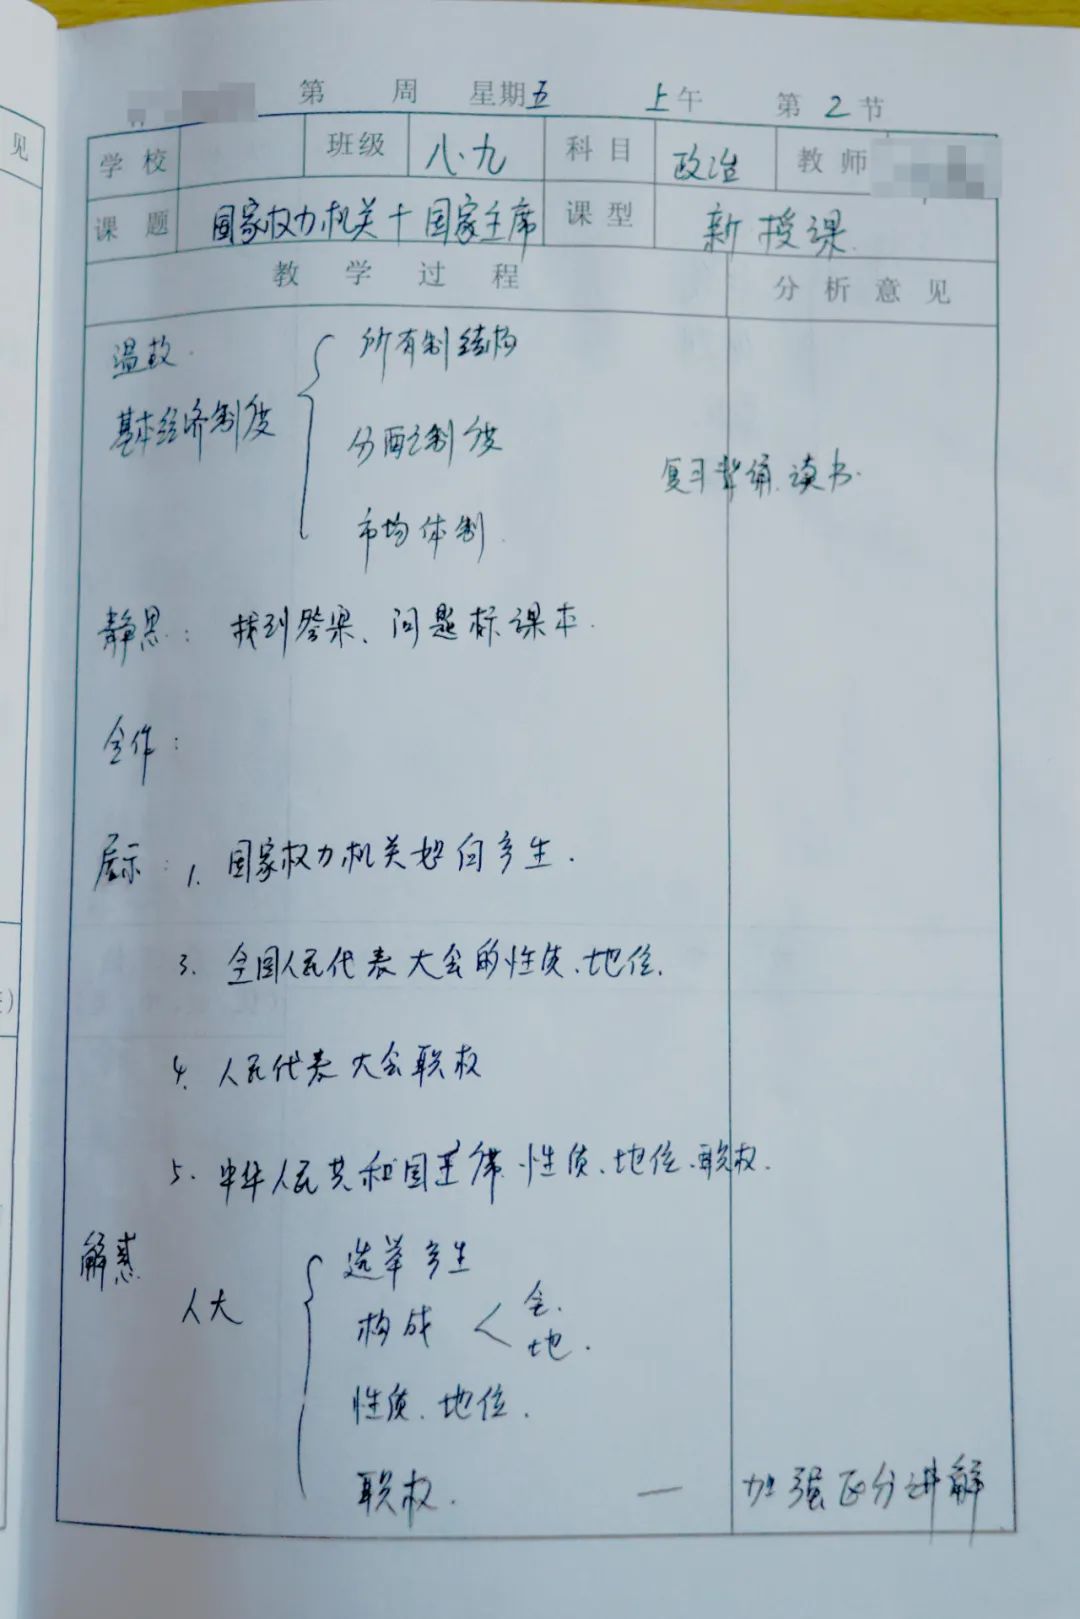 见
第 周 星期五 上午 第2节
学校 班级 八.九 科目 政治 教师
课题 国家权力机关+国家主席 课型 新授课
教学过程 分析意见
温故.
所有制结构
基本经济制度
分配制度
复习背诵、读书.
市场体制.
静思: 找到答案、问题标课本.
合作:
展示: 1. 国家权力机关如何产生.
3. 全国人民代表大会的性质、地位.
4. 人民代表大会职权
5. 中华人民共和国主席.性质、地位、职权.
解惑
选举产生
人大
构成 < 全. 地.
性质、地位.
职权. — 加强区分讲解